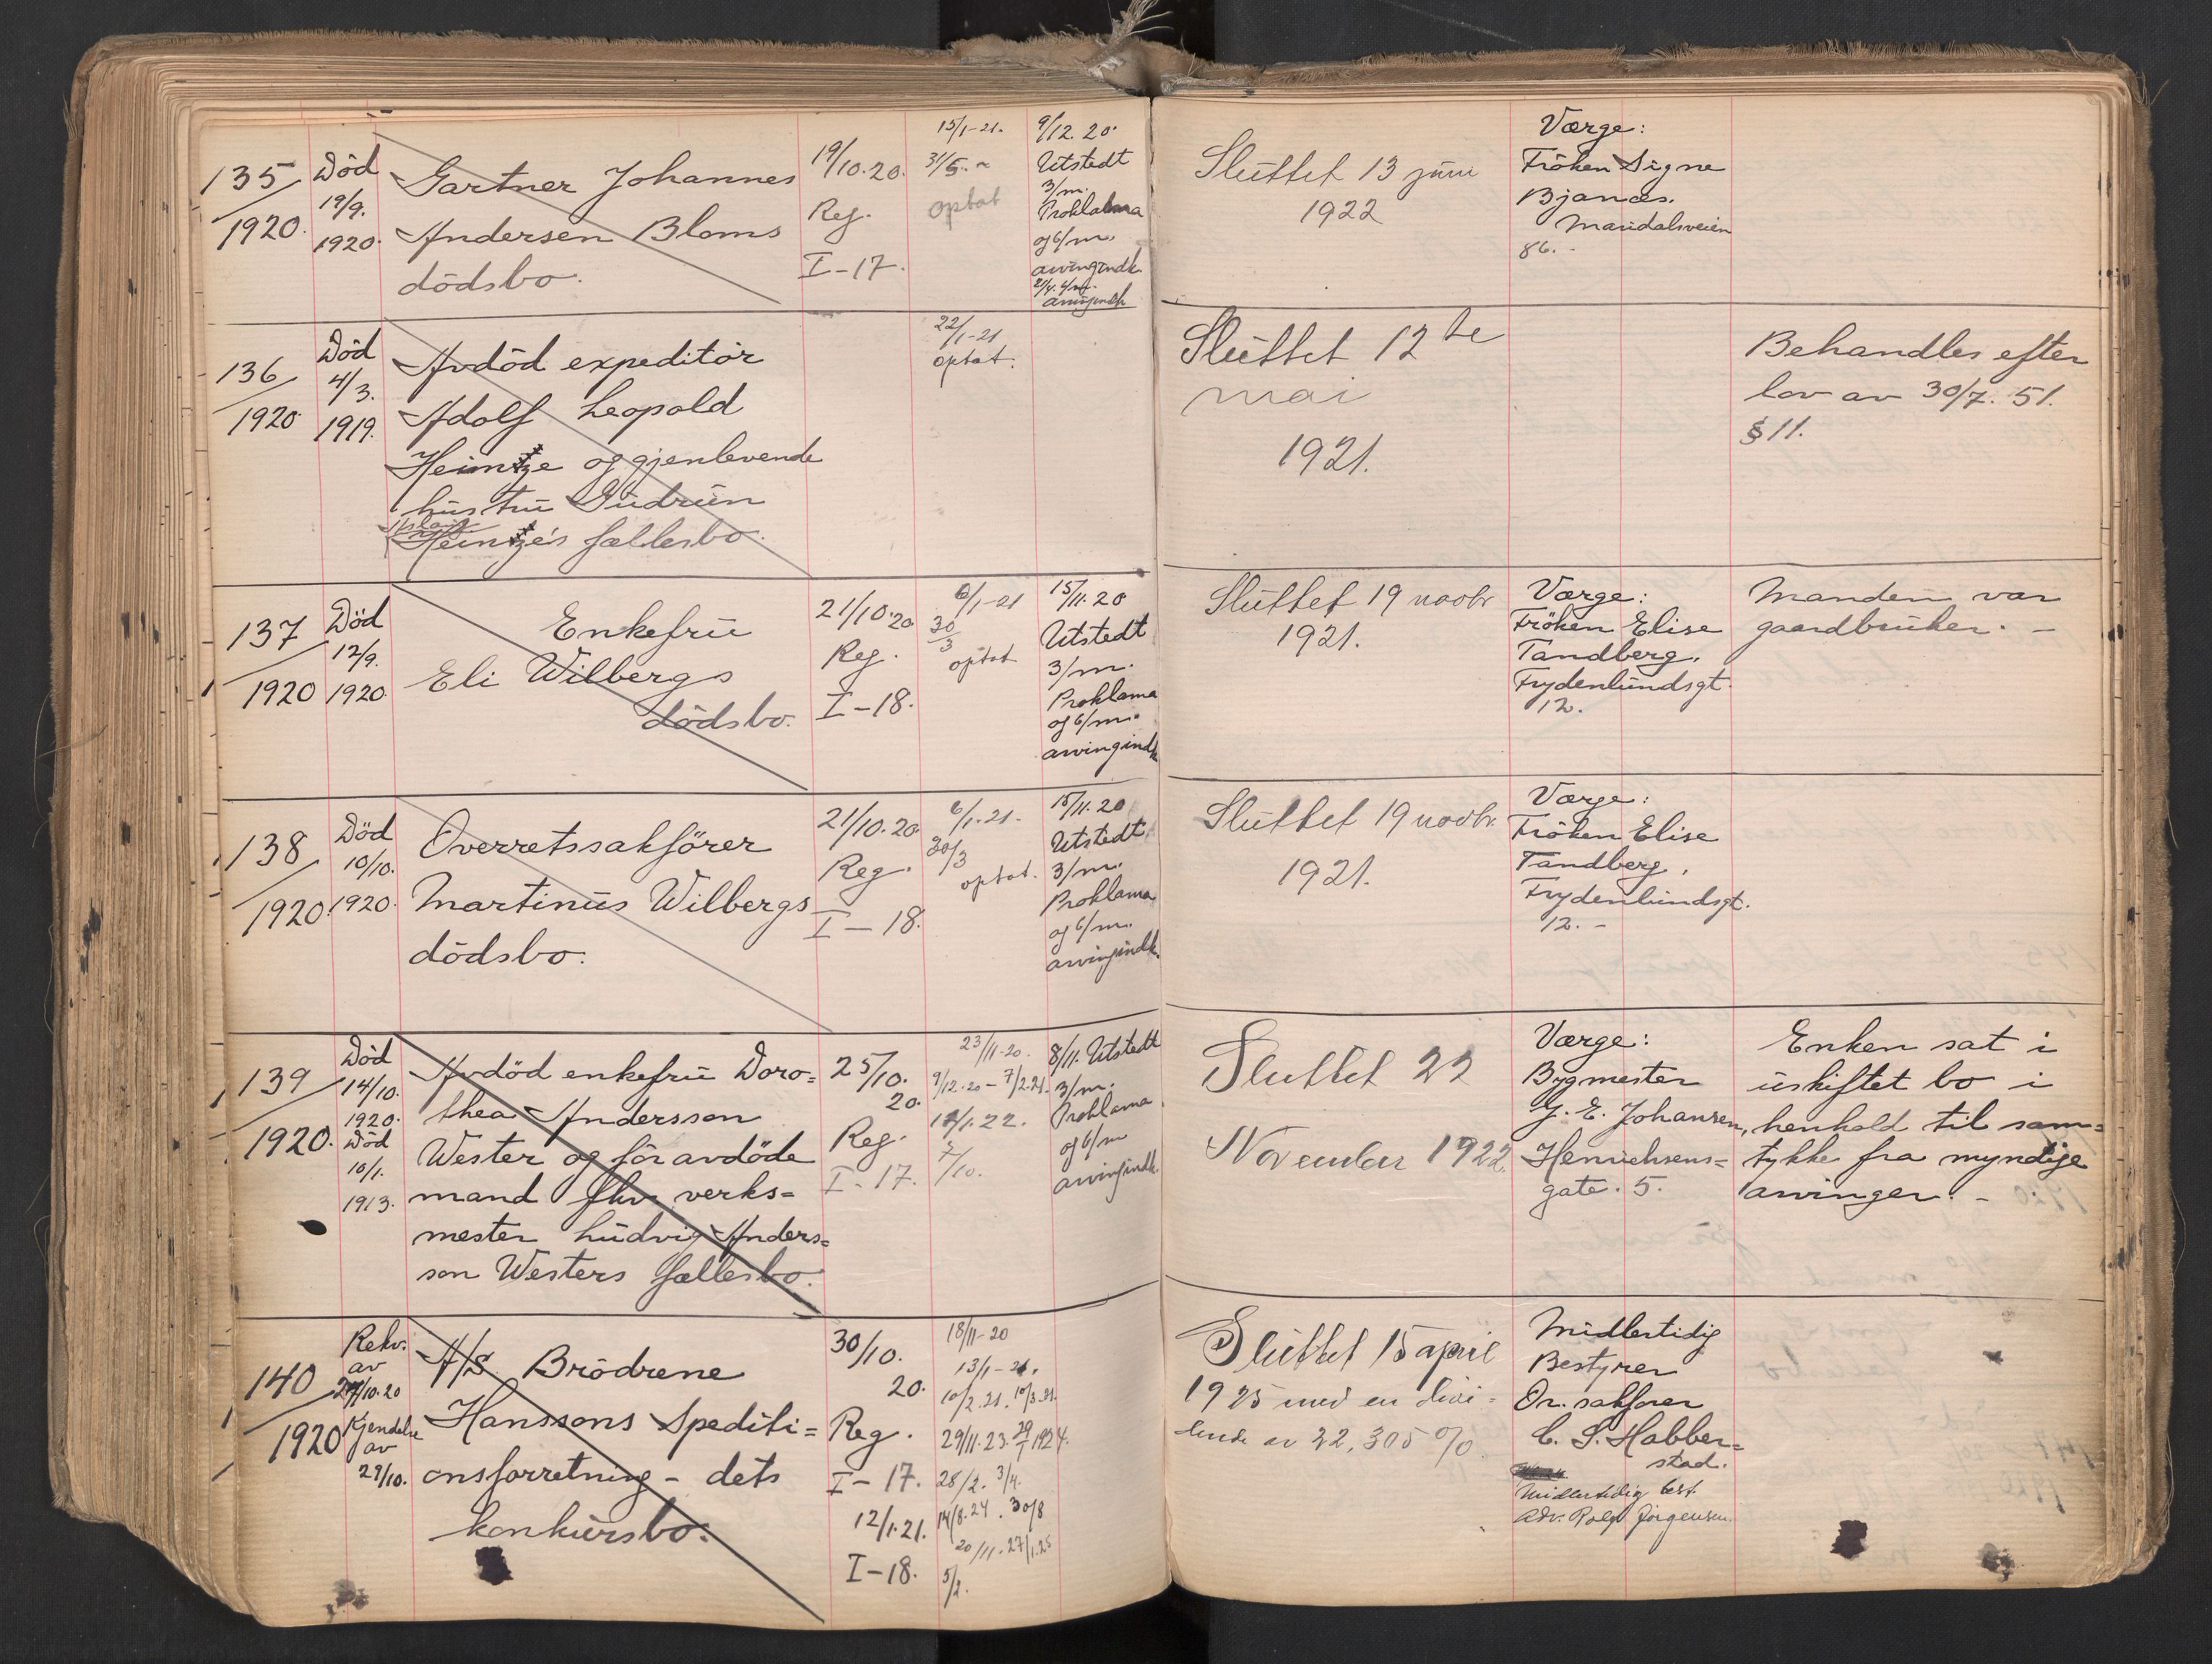 135/1920.
Död
19/9.
1920.
Gartner Johannes
Andersen Bloms
dödsbo.
19/10.20.
Reg.
I-17.
15/1-21.
31/5.
optat
9/12.20.
Utstedt
3/m.
Proklama
og 6/m.
arvingindk.
Sluttet 13 juni
1922
Værge:
Fröken Signe
Bjanæs.
Maridalsveien
86.-
136/1920
Död
4/3.
1919.
Avdöd expeditör
Adolf Leopold
Heintze og gjenlevende
hustru Gudrun
Heintze's fællesbo.
22/1-21
optat.
Sluttet 12te
mai
1921.
Behandles efter
lov av 30/7.51.
§ 11.
137/1920
Död
12/9.
1920.
Enkefru
Eli Wilbergs
dödsbo.
21/10.20
Reg.
I-18.
6/1-21
30/3
optat
15/11.20
Utstedt
3/m.
Proklama
og 6/m.
arvingindk
Sluttet 19 novbr
1921.
Værge:
Fröken Elise
Tandberg,
Frydenlundsgt.
12.
Manden var
gaardbruker. -
138/1920
Död
10/10.
1920.
Overretssakförer
Martinus Wilbergs
dödsbo.
21/10.20.
Reg.
I-18.
6/1-21.
30/3
optat.
15/11.20
Utstedt
3/m.
Proklama
og 6/m.
arvingindk.
Sluttet 19 novbr.
1921.
Værge:
Fröken Elise
Tandberg,
Frydenlundsgt.
12.-
139/1920.
Död
14/10.
1920.
Död
10/1.
1913.
Avdöd enkefru Doro=
thea Andersson
Wester og för avdöde
mand fhv. verks=
mester Ludvig Anders=
son Westers fællesbo.
25/10.
20.
Reg.
I-17.
23/11-20.
9/12.20 - 7/2.21.
7/10.
8/11. Utstedt
3/m.
Proklama
og 6/m
arvingindk.
Sluttet 22
November 1922.
Værge:
Bygmester
G. E. Johansen,
Henrichsens=
gate. 5.
Enken sat i
uskiftet bo i
henhold til sam=
tykke fra myndige
arvinger. -
140/1920
Rekv.
av
27/10.20
Kjendelse
av
29/10.
A/S Brödrene
Hanssons Spediti=
onsforretning - dets
konkursbo.
30/10.
20.
Reg.
I-17.
12/1.21.
I-18.
18/11-20
13/1-21.
10/2.21. 10/3.21.
29/11.23. 29/1 1924.
28/2. 3/4.
14/8.24. 30/8
20/11. 27/1.25
5/2.
Sluttet 15 april
1925 med en divi=
dende av 22,305 %
Midlertidig
Bestyrer
Or. sakförer
C. S. Habber=
stad.
Midlertidig best.
Adv. Rolf Jörgensen.